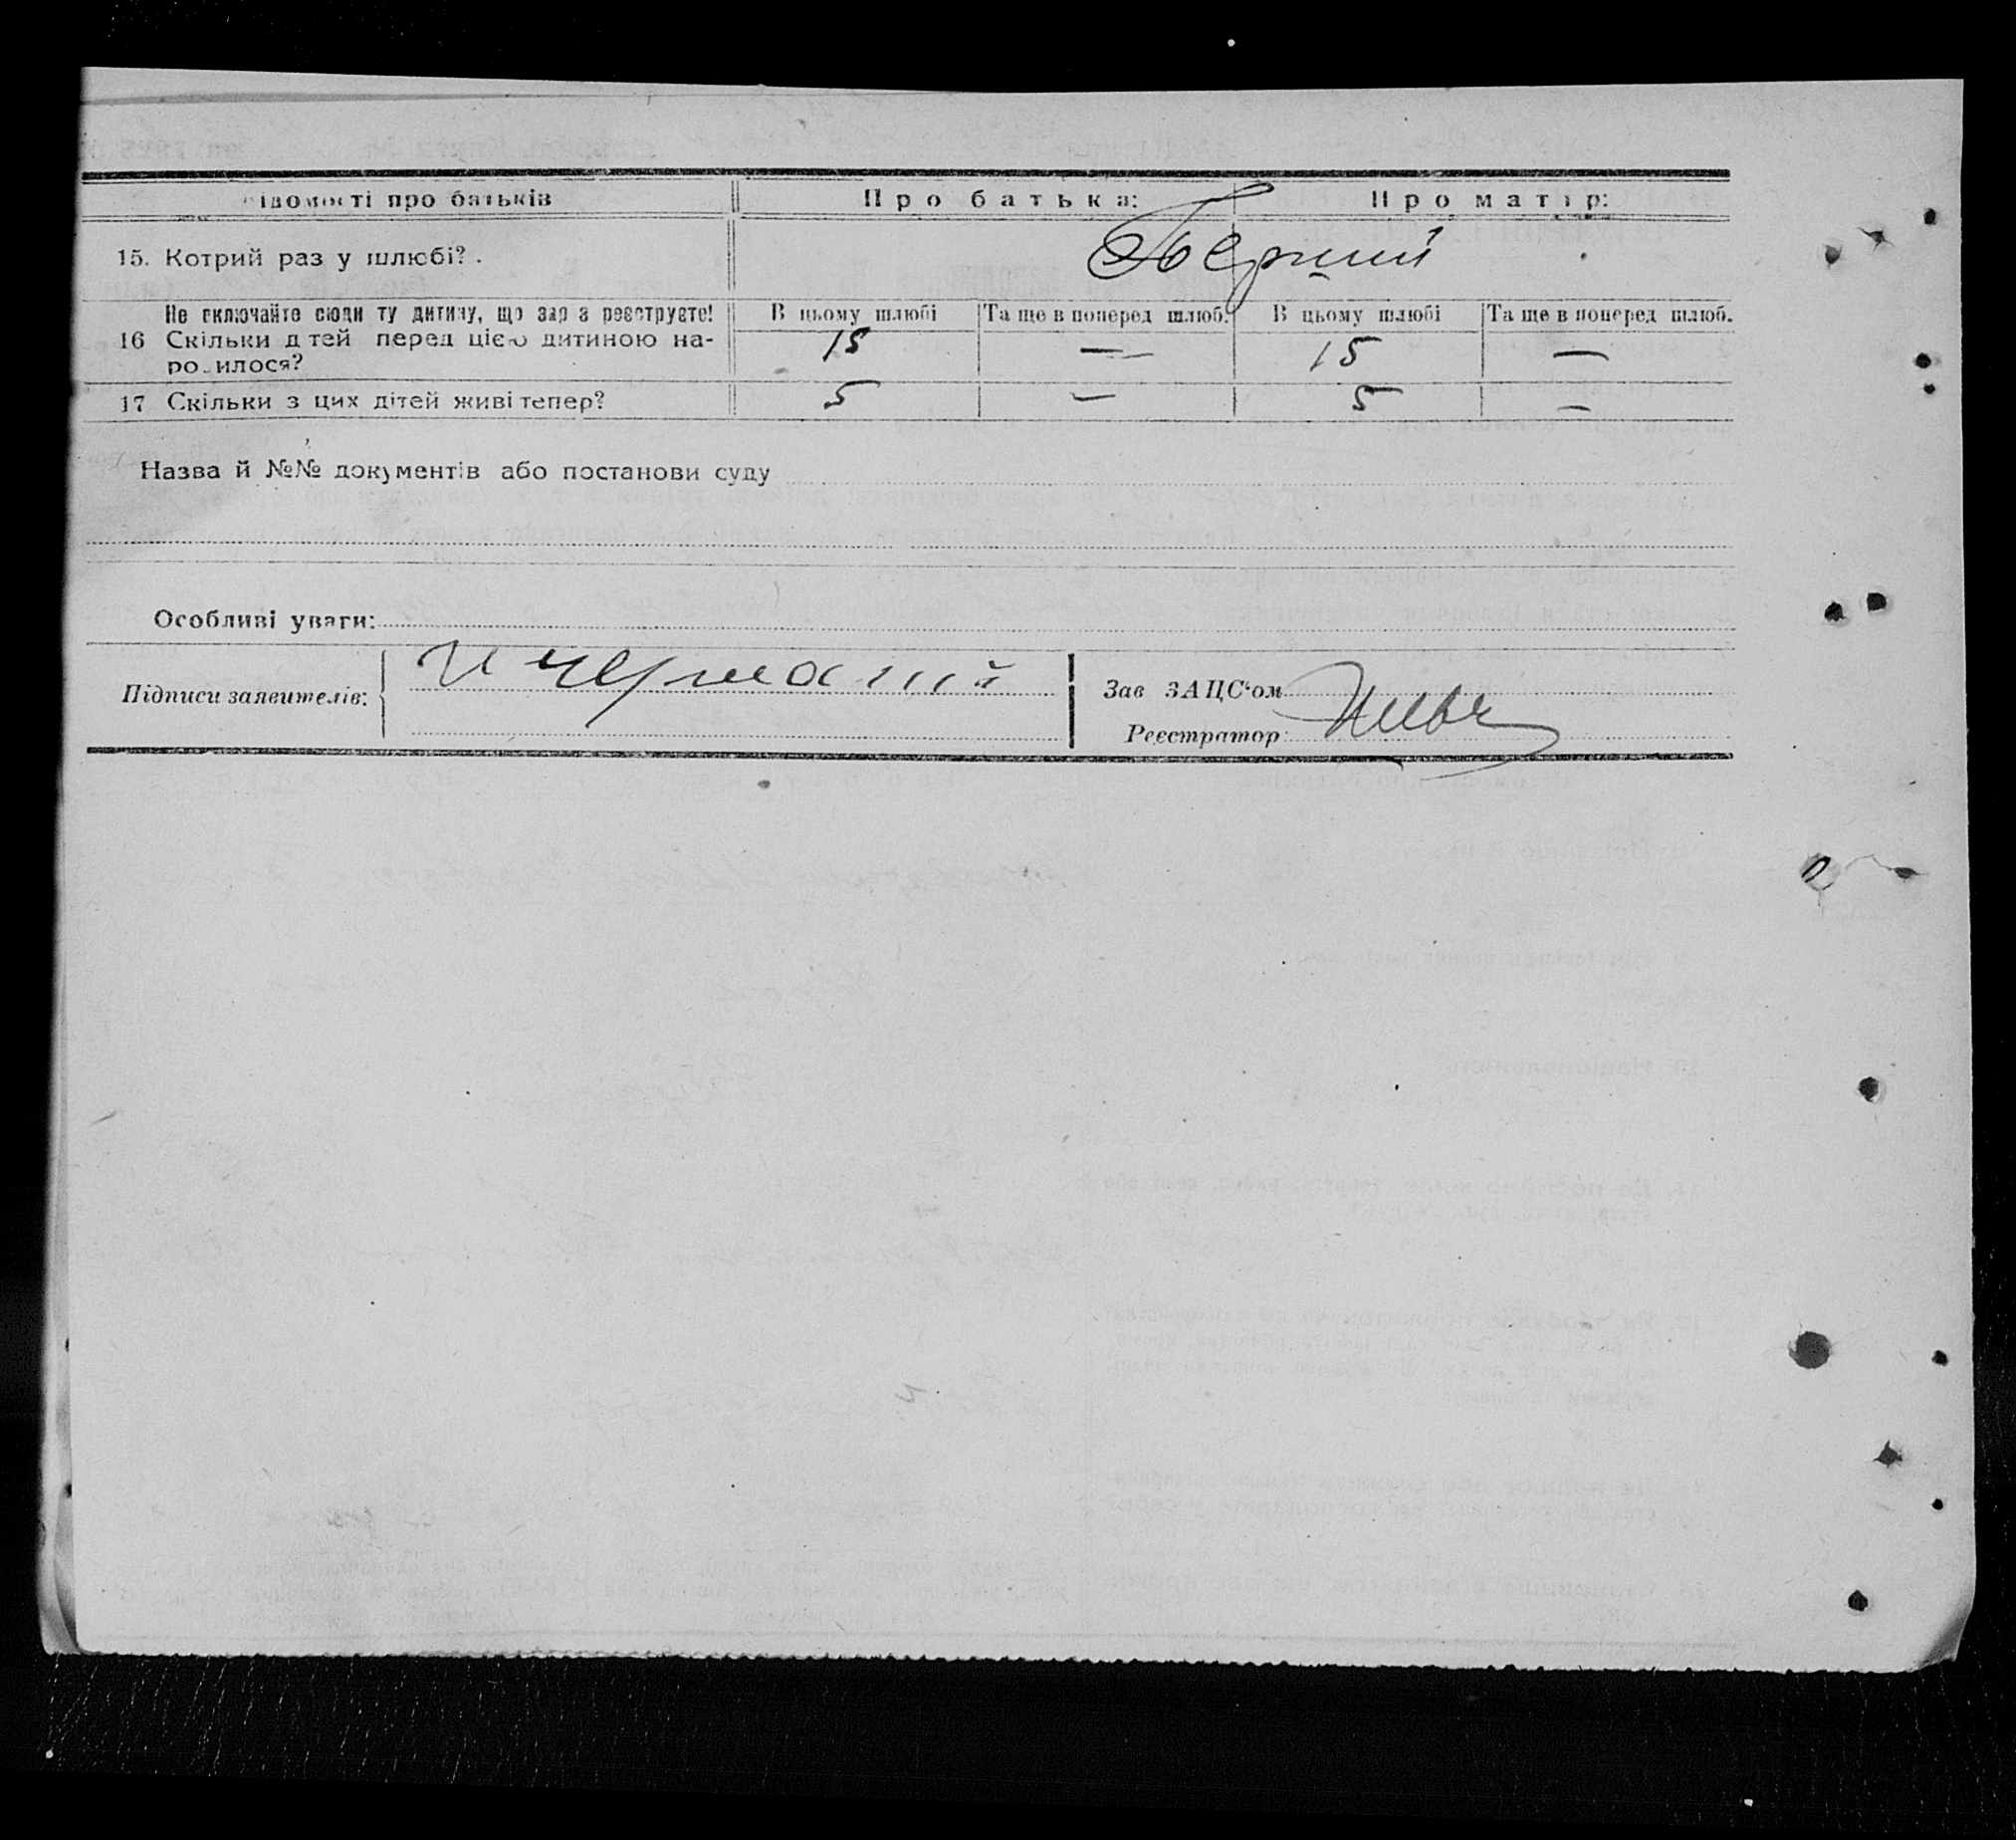 Відомості про батьків Про батька: Про матір:
15. Котрий раз у шлюбі? . Перший
Не включайте сюди ту дитину, що зараз реєструєте! В цьому шлюбі Та ще в поперед шлюб. В цьому шлюбі Та ще в поперед шлюб.
16 Скільки дітей перед цією дитиною на-
родилося? 15 — 15 —
17 Скільки з цих дітей живі тепер? 5 — 5 —
Назва й №№ документів або постанови суду
Особливі уваги:
Підписи заявителів:
Зав ЗАЦС'ом
Реєстратор